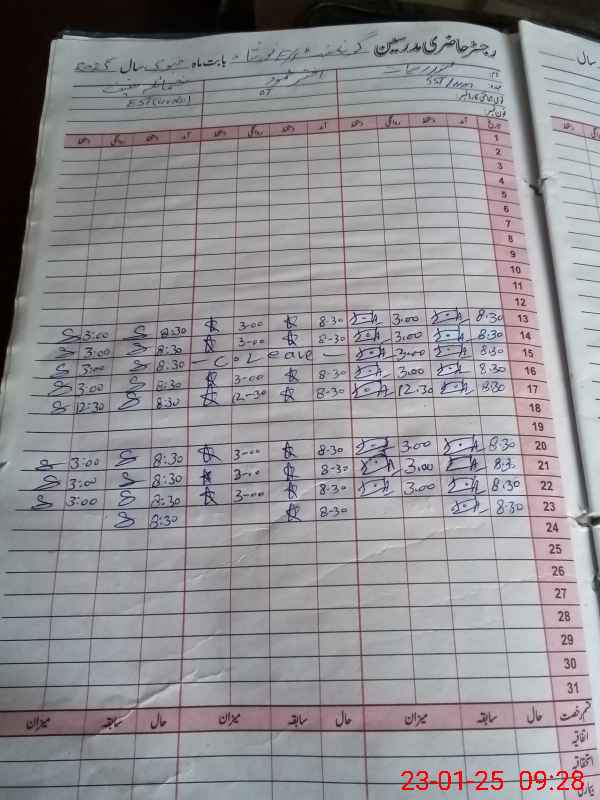 رجسٹر حاضری مدرسین گورنمنٹ بابت ماہ جنوری سال 2025
سال
نام
عہدہ SST
EST(Urdu)
تاریخ آمد دستخط روانگی دستخط آمد دستخط روانگی دستخط آمد دستخط روانگی دستخط
1
2
3
4
5
6
7
8
9
10
11
12
13 8:30 3:00 8-30 3-00 8:30 3:00
14 8:30 3:00 8-30 3-00 8:30 3:00
15 8:30 3:00 - C. Leave - 8:30 3:00
16 8:30 3:00 8-30 3-00 8:30 3:00
17 8:30 12:30 8-30 12-30 8:30 12:30
18
19
20 8:30 3:00 8-30 3-00 8:30 3:00
21 8:30 3:00 8-30 3-00 8:30 3:00
22 8:30 3:00 8-30 3-00 8:30 3:00
23 8:30 8-30 8:30
24
25
26
27
28
29
30
31
قسم رخصت حال سابقہ میزان حال سابقہ میزان حال سابقہ میزان
اتفاقیہ
استحقاقیہ
بیماری
23-01-25 09:28